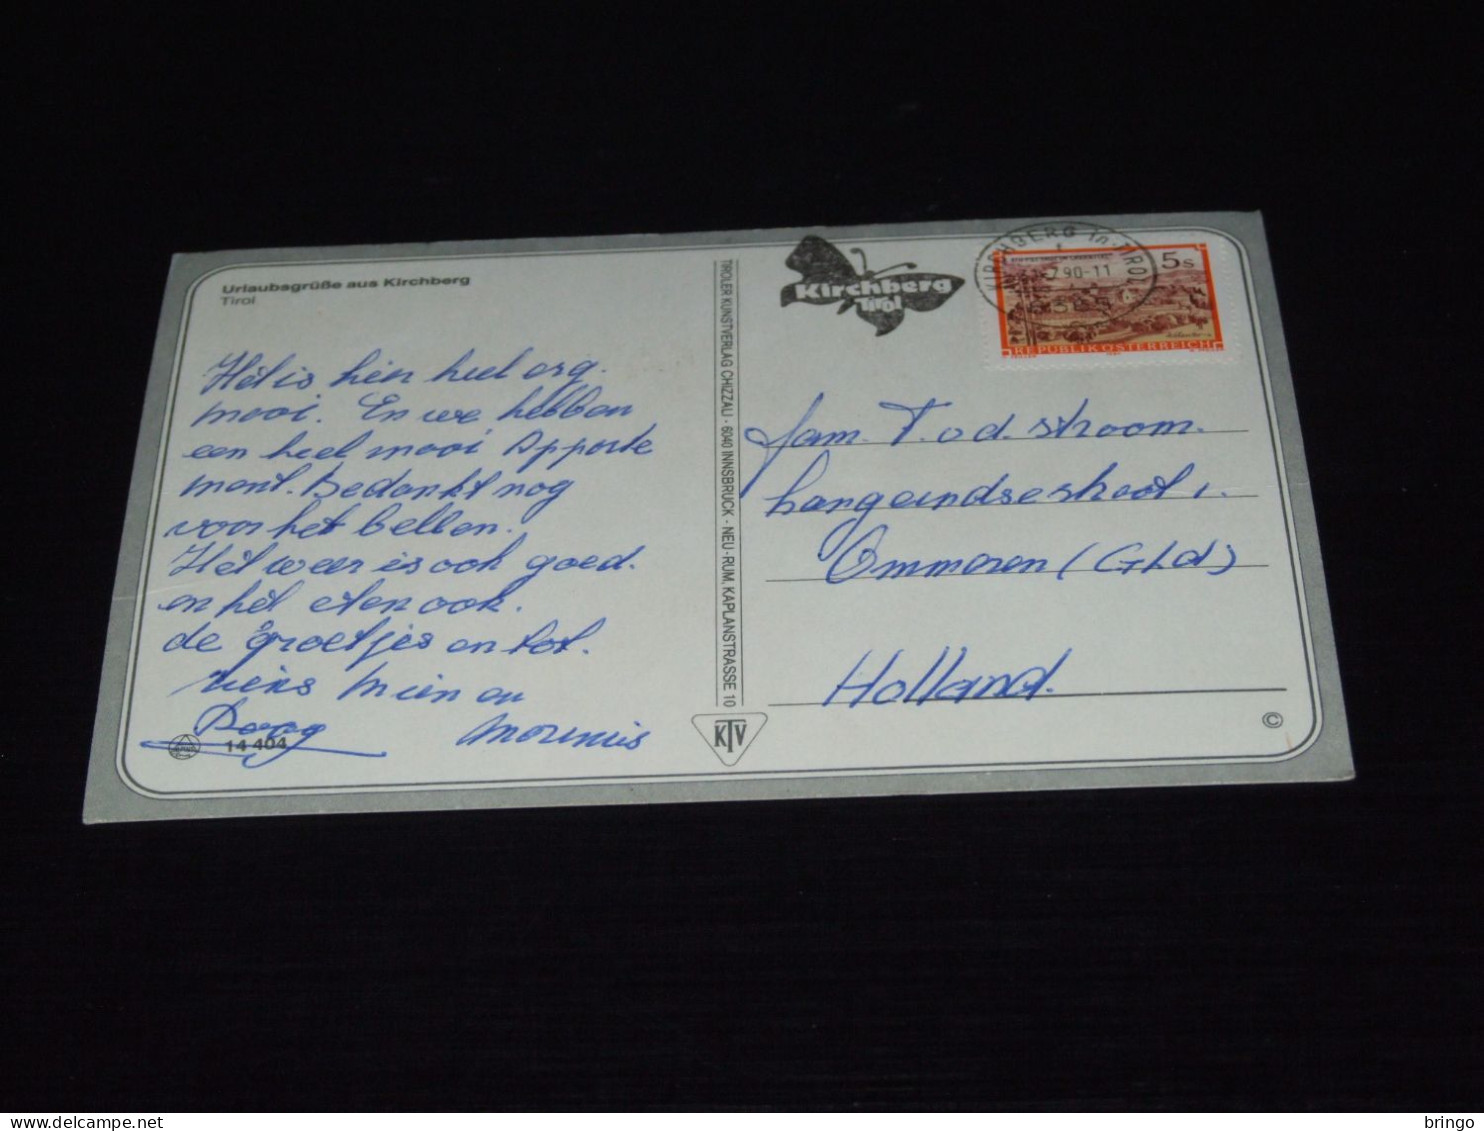 Urlaubsgrüße aus Kirchberg
Tirol
Hèt is hier heel erg.
mooi. En we hebben
een heel mooi Apporte
ment. Bedankt nog
voor het bellen.
Hèt weer is ook goed.
en hèt eten ook.
de groetjes en tot.
ziens Mien en
Marinus
14 404
TIROLER KUNSTVERLAG CHIZZALI · 6040 INNSBRUCK - NEU-RUM, KAPLANSTRASSE 10
KTV
Kirchberg
Tirol
KIRCHBERG in TIROL
7.90-11
5s
REPUBLIK ÖSTERREICH
fam. T. v d. stroom.
Ommeren (Gld)
Holland.
©
bringo